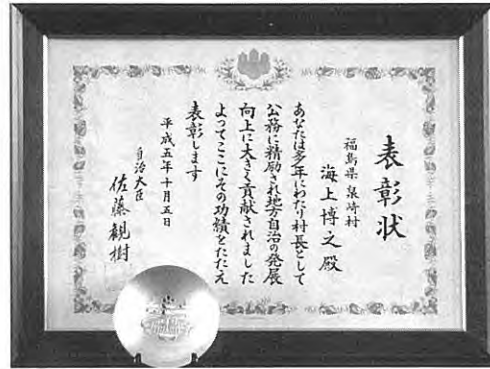 表彰状
福島県泉崎村
海上博之殿
あなたは多年にわたり村長として
公務に精励され地方自治の発展
向上に大きく貢献されました
よってここにその功績をたたえ
表彰します
平成五年十月五日
自治大臣
佐藤観樹